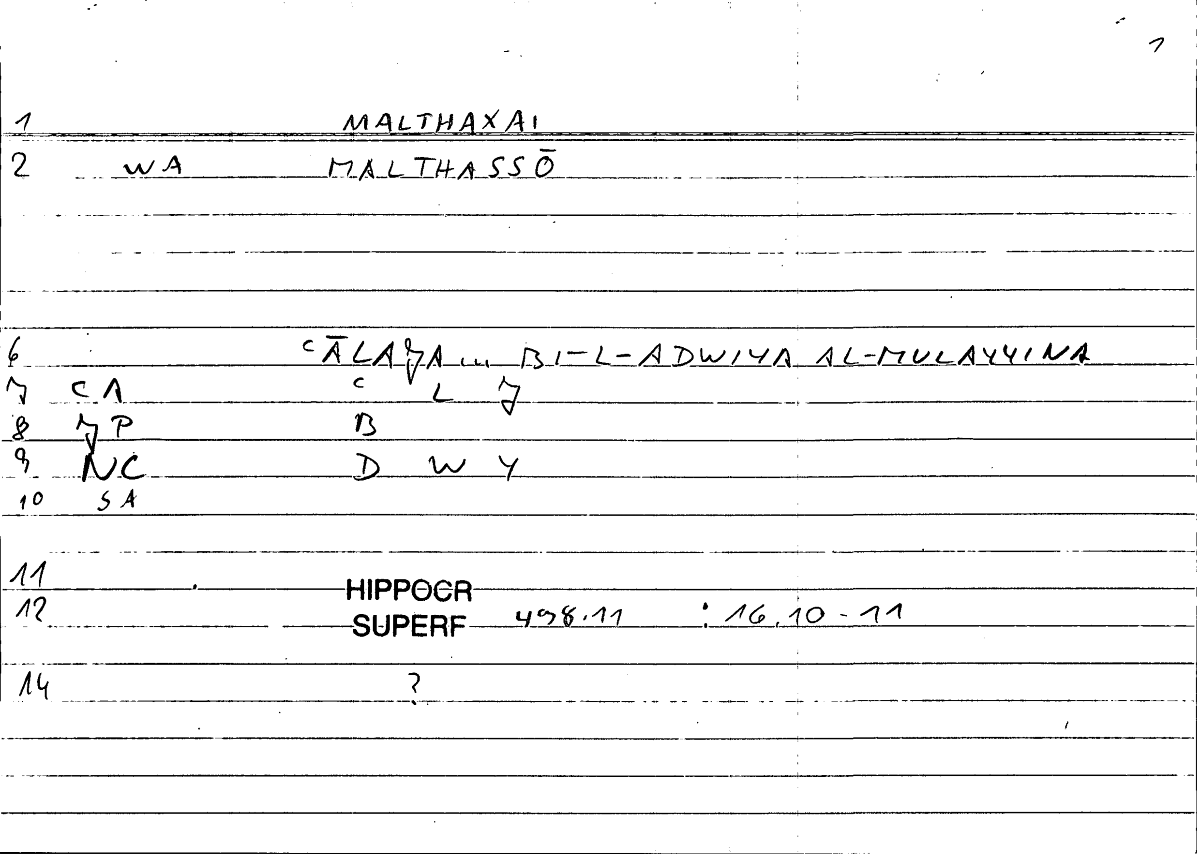 1
1 MALTHAXAI
2 WA MALTHASSŌ
6 ʿĀLAJA ... BI-L-ADWIYA AL-MULAYYINA
7 CA ʿ L J
8 JP B
9 NC D W Y
10 SA
11 HIPPOCR
12 SUPERF 498.11 : 16.10-11
14 ?